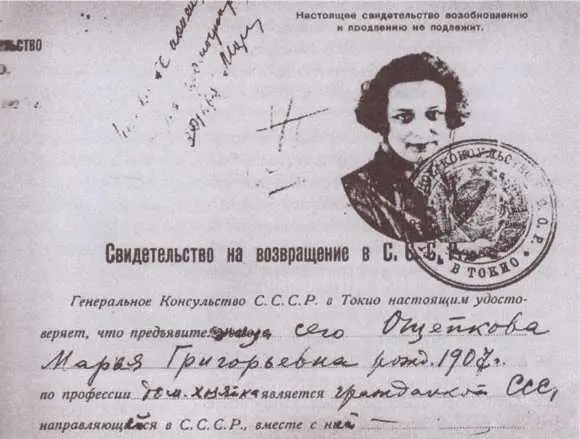 Настоящее свидетельство возобновлению
и продлению не подлежит.
ьство
В ТОКИО
Свидетельство на возвращение в С.С.С.Р.
Генеральное Консульство С.С.С.Р. в Токио настоящим удосто-
веряет, что предъявительница сего Ощепкова
Марья Григорьевна рожд. 1907 г.
по профессии дом. хозяйка является гражданкой ССС,
направляющейся в С.С.С.Р., вместе с ней —